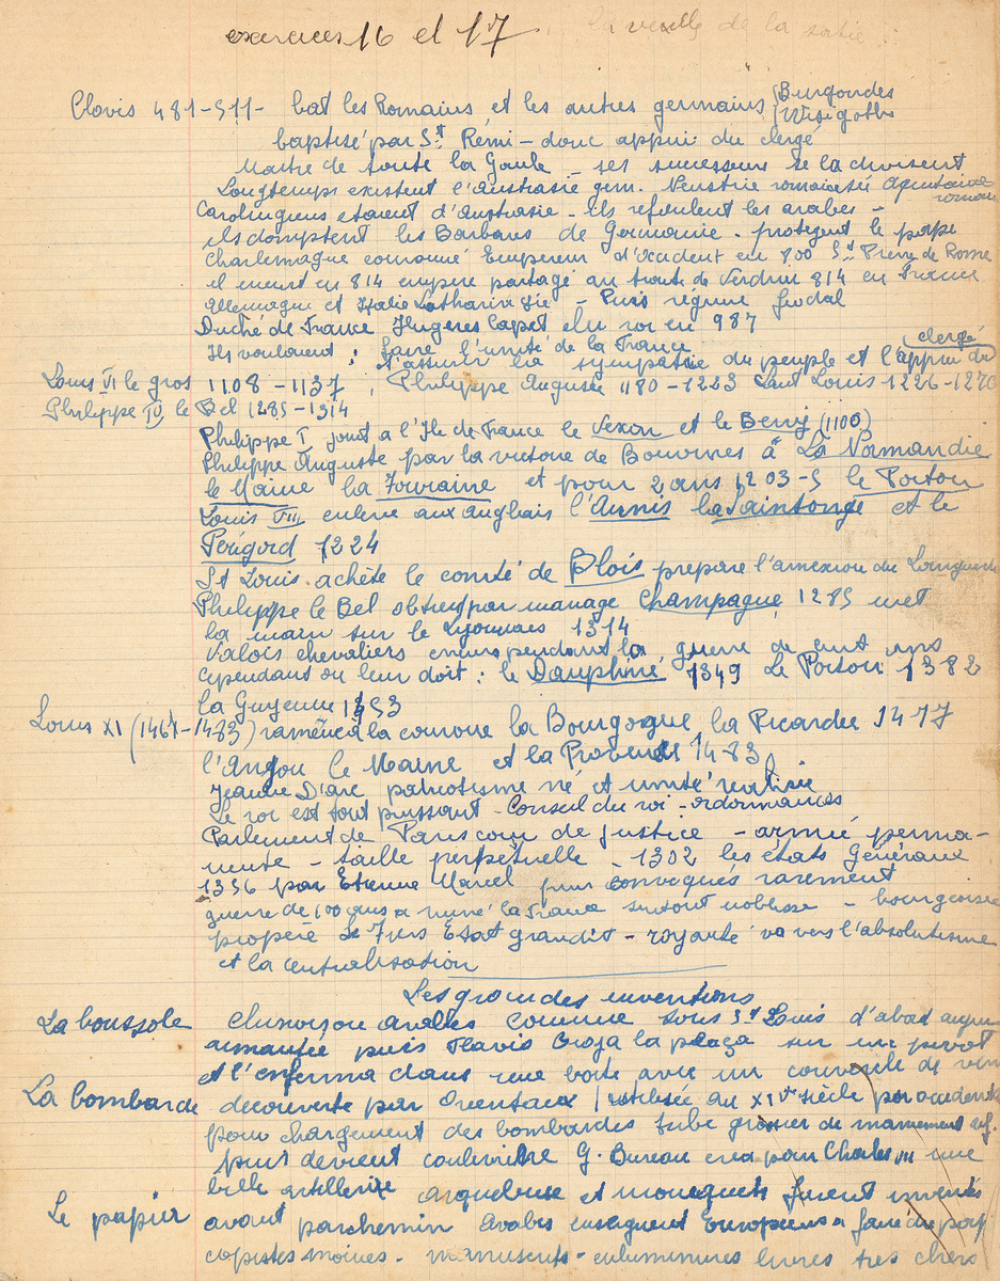 exercices 16 et 17. la veille de la sortie
Clovis 481-511- bat les Romains et les autres germains { Burgondes
{ Wisigoths
baptisé par St Rémi - donc appui du clergé
Maitre de toute la Gaule - ses successeurs se la divisent
Longtemps existent l'Austrasie germ. Neustrie romanisée Aquitaine
romane
Carolingiens etaient d'Austrasie - ils refoulent les arabes -
ils domptent les Barbares de Germanie. protègent le pape
Charlemagne couronné Empereur d'Occident en 800 St Pierre de Rome
il meurt en 814 empire partagé au traité de Verdun 814 en France
Allemagne et Italie Lotharingie - Puis régime féodal
Duché de France Hugues Capet élu roi en 987
Ils voulaient : faire l'unité de la France
s'assurer la sympathie du peuple et l'appui du
clergé
Louis VI le gros 1108-1137, Philippe Auguste 1180-1223 Saint Louis 1226-1270
Philippe IV le Bel 1285-1314
Philippe I joint a l'Ile de France le Vexin et le Berry (1100)
Philippe Auguste par la victoire de Bouvines a La Normandie
le Maine la Touraine et pour 2 ans 1203-5 le Poitou
Louis VIII enlève aux anglais l'Aunis la Saintonge et le
Périgord 1224
St Louis achète le comté de Blois prepare l'annexion du
Philippe le Bel obtient par mariage Champagne 1285 met
la main sur le Lyonnais 1314
Valois chevaliers pendant la guerre de cent ans
Cependant on leur doit : le Dauphiné 1349 Le Poitou 1382
la Guyenne 1453
Louis XI (1461-1483) ramène à la couronne la Bourgogne la Picardie 1477
l'Anjou le Maine et la Provence 1483
Jeanne D'arc patriotisme né et unité realisée
Le roi est tout puissant - Conseil du roi - ordonnances
Parlement de Paris cour de justice - armée perma-
nente - taille perpétuelle - 1302 les états Généraux
1356 par Etienne Marcel puis convoqués rarement
guerre de 100 ans a ruiné la France surtout noblesse - bourgeoisie
propère Le Tiers État grandit - royauté va vers l'absolutisme
et la centralisation
Les grandes inventions
La boussole chinois ou arabes connue sous St Louis d'abord
aimantée puis Flavio Gioja la plaça sur un pivot
et l'enferma dans une boite avec un couvercle de
La bombarde decouverte par Orientaux / utilisée au XIVe siècle par
pour chargement des bombardes tube grossier de maniement
puis devient coulevrine G. Bureau crea pour Charles VII une
belle artillerie arquebuse et mousquets furent inventés
Le papier avant parchemin Arabes enseignent Européens a faire du
copistes moines - manuscrits - enluminures livres très chers